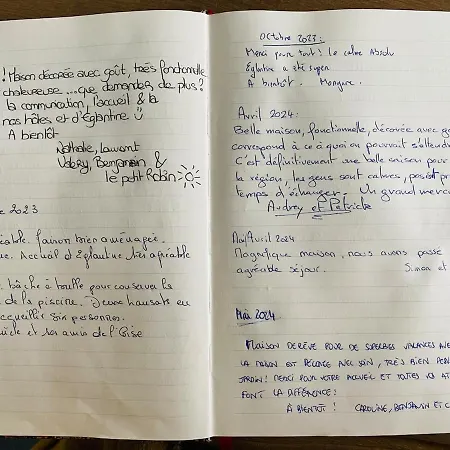 ! Maison décorée avec goût, très fonctionnelle
chaleureuse ... que demander de plus ?
la communication, l'accueil & la
nos hôtes et d'Eglantine
A bientôt
Nathalie, Laurent
Benjamin &
le petit Robin
e 2023
éable. maison bien aménagée.
ue. Accueil d'Eglantine très agréable
bâche à bulle pour conserver la
de la piscine. D'une hauts en
ccueillir six personnes.
et ses amis de l'Oise
Octobre 2023 :
Merci pour tout ! le calme Absolu
Eglantine a été super.
A bientôt.
Avril 2024 :
Belle maison, fonctionnelle, décorée avec go
correspond à ce à quoi on pourrait s'attendr
C'est définitivement une belle saison pour
la région, les gens sont calmes, posés pr
temps d'échanger. Un grand merci
Audrey et Patrick
Avril 2024
Magnifique maison, nous avons passé
agréable séjour. Simon et
Mai 2024
MAISON DE RÊVE POUR DE SUPERBES VACANCES AVE
LA MAISON EST DÉCORÉE AVEC SOIN, TRÈS BIEN PEN
JARDIN ! MERCI POUR VOTRE ACCUEIL ET TOUTES VOS AT
FONT LA DIFFÉRENCE !
À BIENTÔT ! CAROLINE, BENJAMIN ET C